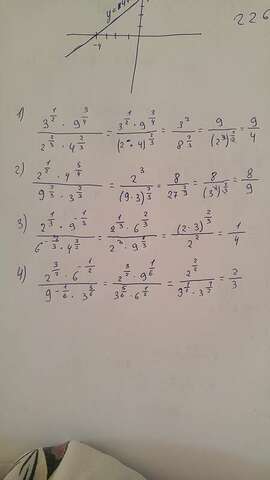 -4
226
1) \frac{3^{\frac{1}{2}} \cdot 9^{\frac{3}{4}}}{2^{\frac{2}{3}} \cdot 4^{\frac{2}{3}}} = \frac{3^{\frac{1}{2}} \cdot 9^{\frac{3}{4}}}{(2 \cdot 4)^{\frac{2}{3}}} = \frac{3^{2}}{8^{\frac{2}{3}}} = \frac{9}{(2^{3})^{\frac{2}{3}}} = \frac{9}{4}
2) \frac{2^{\frac{1}{2}} \cdot 4^{\frac{5}{4}}}{9^{\frac{2}{3}} \cdot 3^{\frac{2}{3}}} = \frac{2^{3}}{(9 \cdot 3)^{\frac{2}{3}}} = \frac{8}{27^{\frac{2}{3}}} = \frac{8}{(3^{3})^{\frac{2}{3}}} = \frac{8}{9}
3) \frac{2^{\frac{1}{3}} \cdot 9^{-\frac{1}{3}}}{6^{-\frac{2}{3}} \cdot 4^{\frac{2}{3}}} = \frac{2^{\frac{1}{3}} \cdot 6^{\frac{2}{3}}}{2^{\frac{4}{3}} \cdot 9^{\frac{1}{3}}} = \frac{(2 \cdot 3)^{\frac{2}{3}}}{2^{2}} = \frac{1}{4}
4) \frac{2^{\frac{3}{2}} \cdot 6^{-\frac{1}{2}}}{9^{-\frac{1}{6}} \cdot 3^{\frac{5}{6}}} = \frac{2^{\frac{3}{2}} \cdot 9^{\frac{1}{6}}}{3^{\frac{5}{6}} \cdot 6^{\frac{1}{2}}} = = \frac{2}{3}